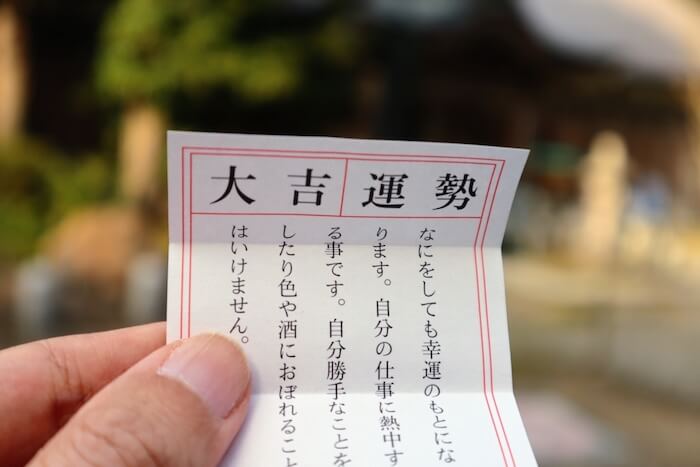 大吉運勢
なにをしても幸運のもとにな
ります。自分の仕事に熱中す
る事です。自分勝手なことを
したり色や酒におぼれること
はいけません。